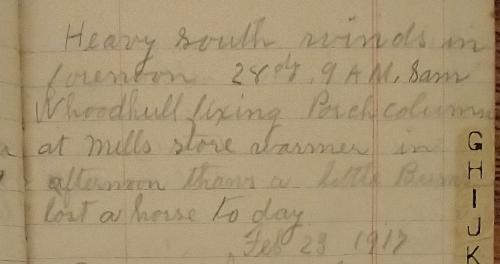 Heavy south winds in
forenoon 28° 9 A M. Sam
Whoodhull fixing Porch column
at Mills store warmer in
afternoon thaws a little
lost a horse to day
Feb 23 1917
G
H
I
J
K